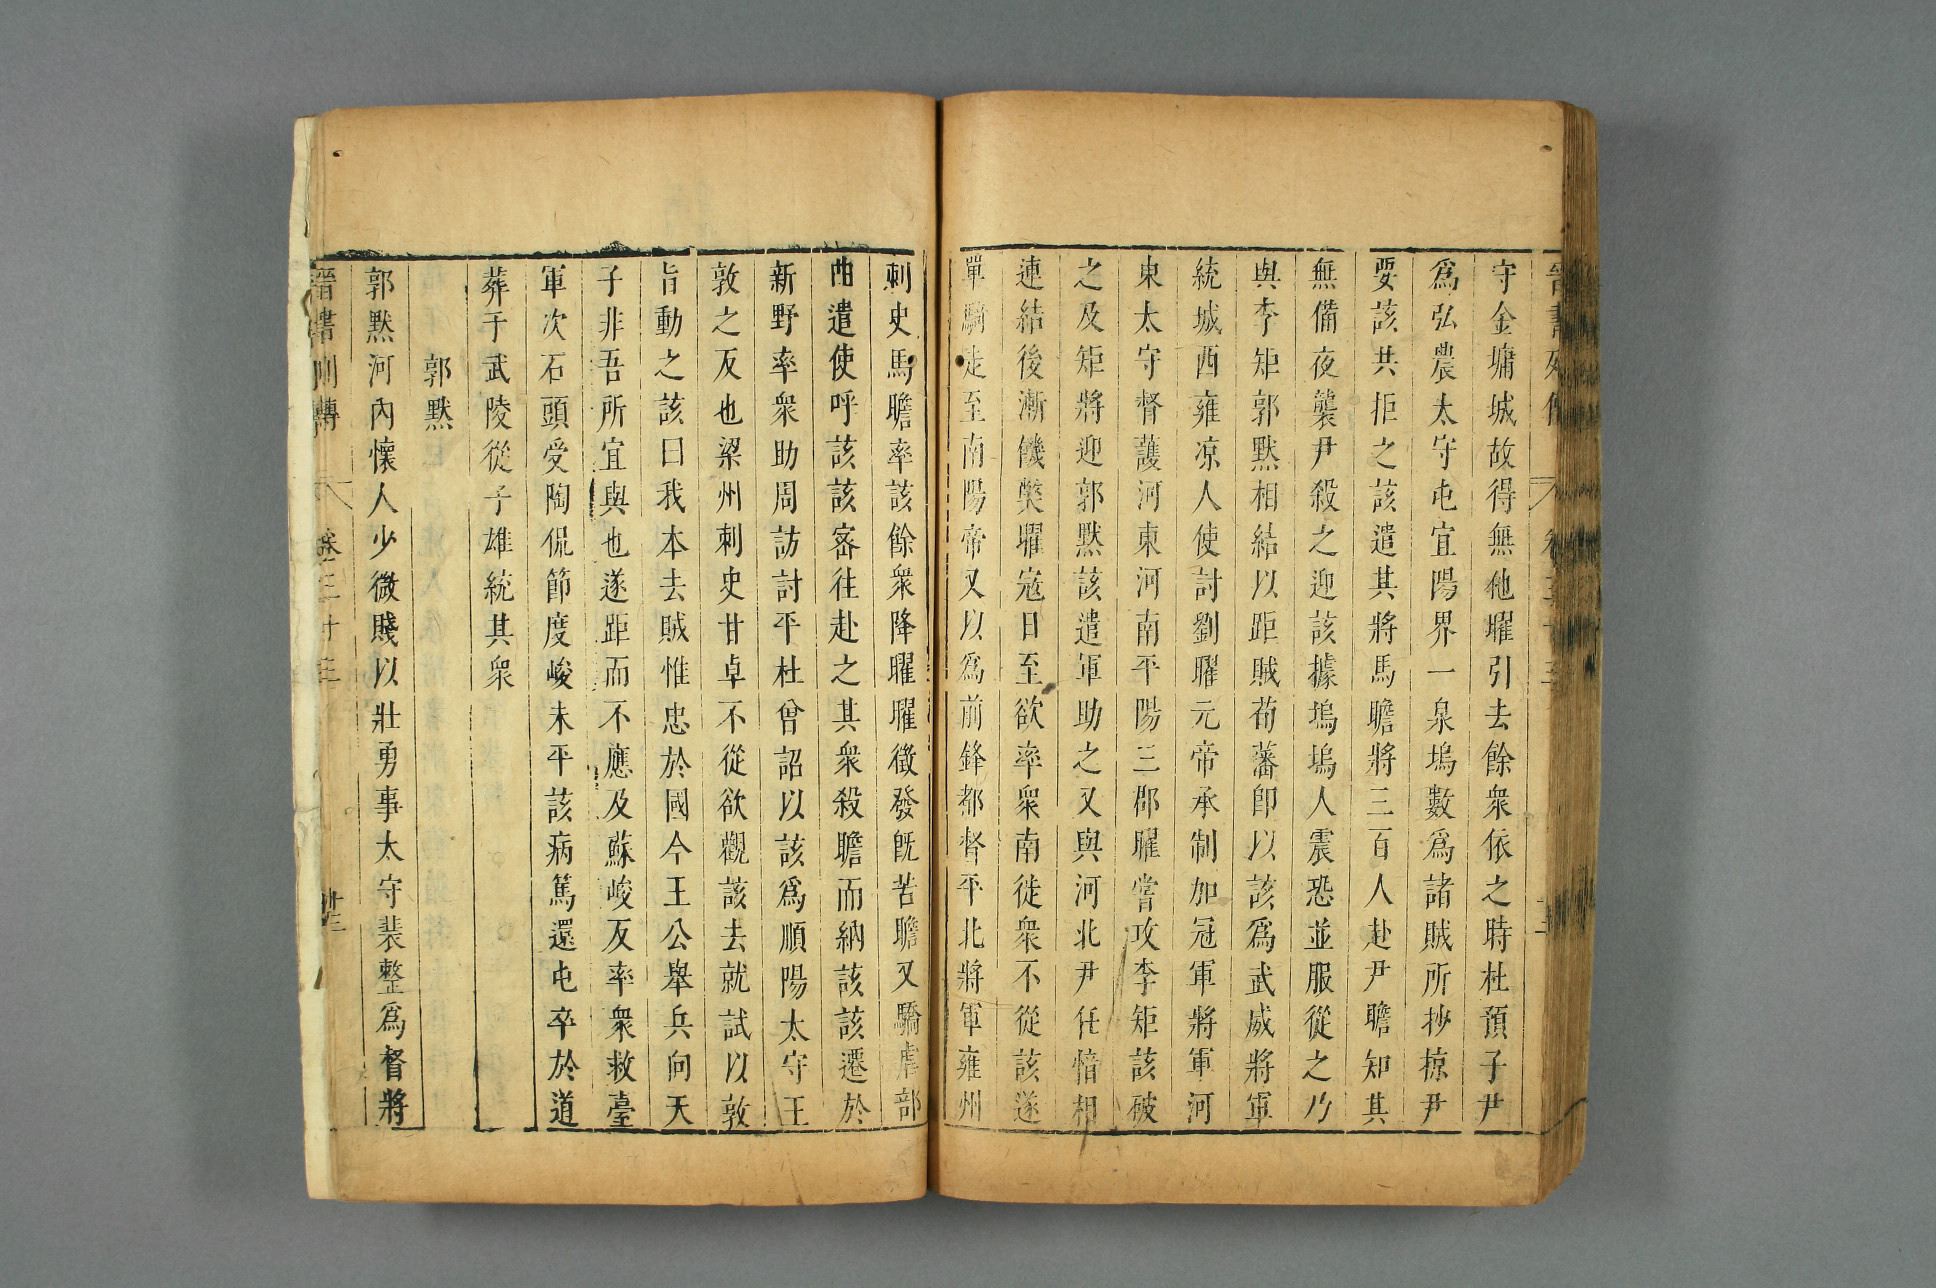 晉書列傳 卷三十三
守金墉城故得無他曜引去餘衆依之時杜預子尹
爲弘農太守屯宜陽界一泉塢數爲諸賊所抄掠尹
要該共拒之該遣其將馬瞻將三百人赴尹瞻知其
無備夜襲尹殺之迎該據塢塢人震恐並服從之乃
與李矩郭默相結以距賊荀藩卽以該爲武威將軍
統城西雍凉人使討劉曜元帝承制加冠軍將軍河
東太守督護河東河南平陽三郡曜嘗攻李矩該破
之及矩將迎郭默該遣軍助之又與河北尹任愔相
連結後漸饑獘曜寇日至欲率衆南徒衆不從該遂
單騎走至南陽帝又以爲前鋒都督平北將軍雍州
刺史馬瞻率該餘衆降曜曜徵發旣苦瞻又驕虐部
曲遣使呼該該密往赴之其衆殺瞻而納該該遷於
新野率衆助周訪討平杜曾詔以該爲順陽太守王
敦之反也梁州刺史甘卓不從欲觀該去就試以敦
旨動之該曰我本去賊惟忠於國今王公舉兵向天
子非吾所宜與也遂距而不應及蘇峻反率衆救臺
軍次石頭受陶侃節度峻未平該病篤還屯卒於道
葬于武陵從子雄統其衆
郭默
郭默河內懷人少微賤以壯勇事太守裴整爲督將
晉書列傳 卷三十三 廿三